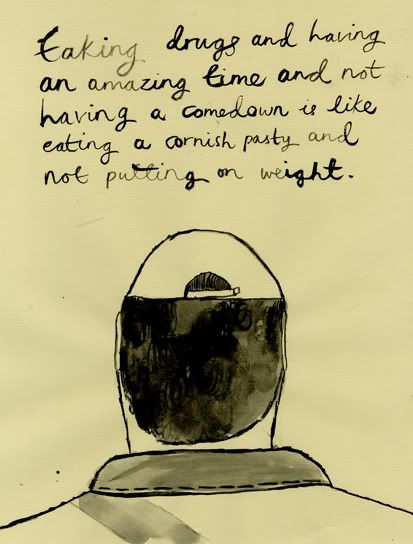 taking drugs and having
an amazing time and not
having a comedown is like
eating a cornish pasty and
not putting on weight.